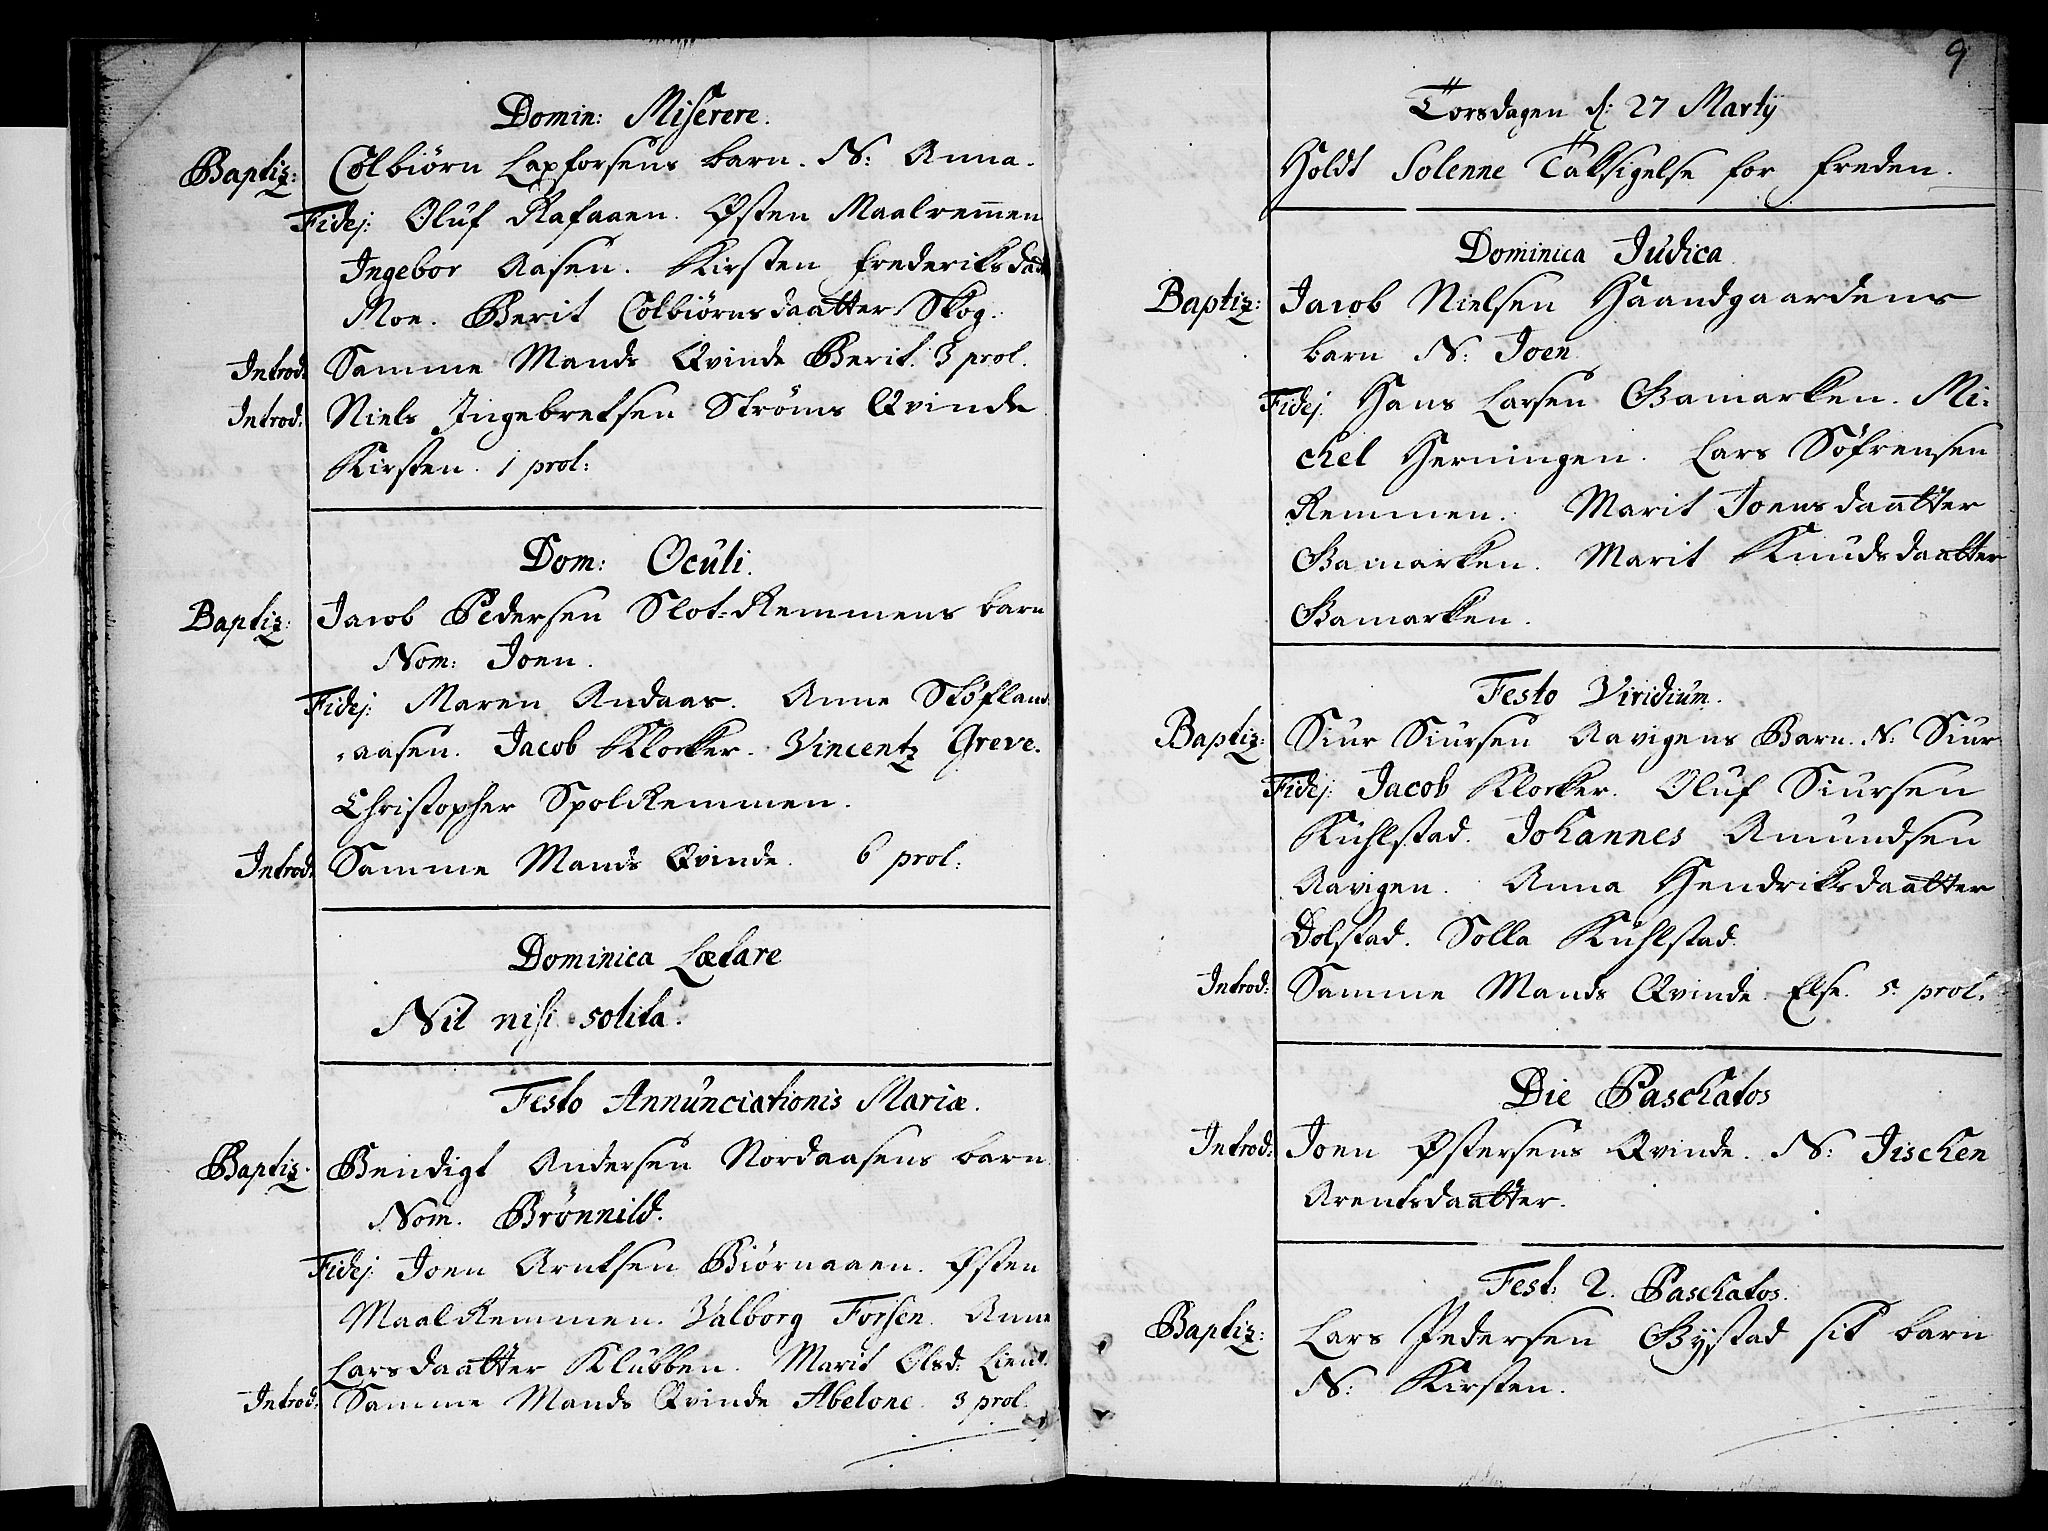 Domin: Miserere.
Baptiz: Colbiørn Laxforsens barn. N: Anna.
Fidej: Oluf Rafaaen. Østen Maalremmen
Ingebor Aasen. Kirsten Frederiksdaat
Moe. Berit Colbiørnsdaatter Skog.
Introd: Samme Mands Qvinde Berit. 3 prol.
Introd: Niels Ingebretsen Strøms Qvinde
Kirsten. 1 prol:
Dom: Oculi.
Baptiz: Jacob Pedersen Slot-Remmens barn
Nom: Joen.
Fidej: Maren Andaas. Anne Skøfland
-aasen. Jacob Klocker. Vincentz Greve.
Christopher SpolRemmen.
Introd: Samme Mands Qvinde. 6 prol:
Dominica Lætare
Nil nisi solita.
Festo Annunciationis Mariæ.
Baptiz: Bendigt Andersen Nordaasens barn
Nom. Brønnild.
Fidej: Joen Arntsen Biørnaaen. Østen
MaalRemmen. Valborg Forsen. Anne
Larsdaatter Klubben. Marit Olsd: Lien.
Introd: Samme Mands Qvinde Abelone. 3 prol.
9
Torsdagen d: 27 Martij
Holdt Solenne Taksigelse for freden.
Dominica Judica
Baptiz: Jacob Nielsen Haandgaardens
barn N: Joen
Fidej: Hans Larsen Bamarken. Mi-
chel Herningen. Lars Søfrensen
Remmen. Marit Joensdaatter
Bamarken. Marit Knudsdaatter
Bamarken.
Festo Viridium.
Baptiz: Siur Siursen Aavigens Barn. N: Siur
Fidej: Jacob Klocker. Oluf Siursen
Kuhlstad. Johannes Amundsen
Aavigen. Anna Hendriksdaatter
Dolstad. Solla Kuhlstad.
Introd: Samme Mands Qvinde. Else. 5. prol.
Die Paschatos
Introd: Joen Østersens Qvinde. N: Jischen
Arentsdaatter.
Fest: 2. Paschatos.
Baptiz: Lars Pedersen Bystad sit barn
N: Kirsten.